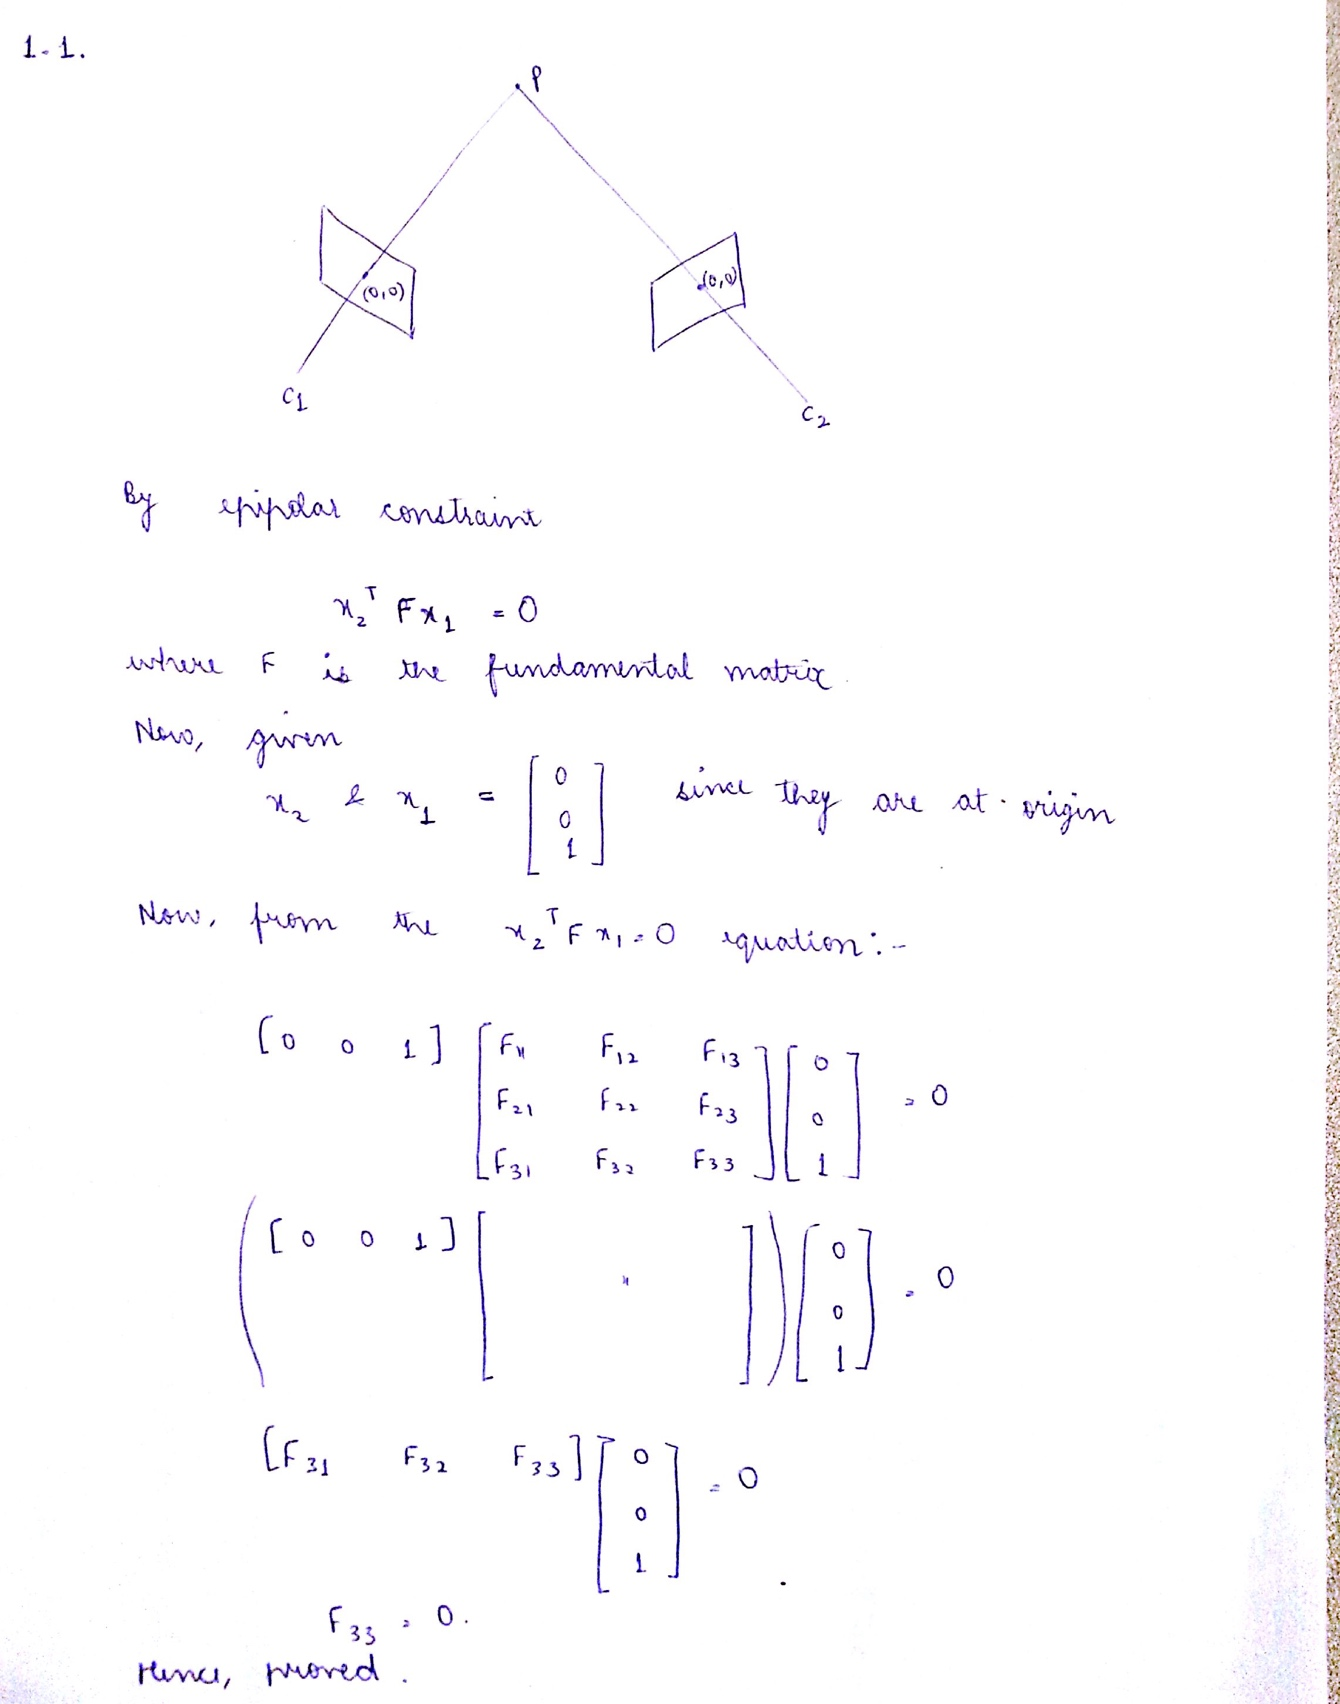 1-1.
P
(0,0)
(0,0)
C1
C2
By epipolar constraint
x₂ᵀ F x₁ = 0
where F is the fundamental matrix.
Now, given
x₂ & x₁ = [0 0 1] since they are at origin
Now, from the x₂ᵀ F x₁ = 0 equation :-
[0 0 1] [F₁₁ F₁₂ F₁₃ F₂₁ F₂₂ F₂₃ F₃₁ F₃₂ F₃₃] [0 0 1] = 0
([0 0 1] [ " ]) [0 0 1] = 0
[F₃₁ F₃₂ F₃₃] [0 0 1] = 0
F₃₃ = 0.
Hence, proved.